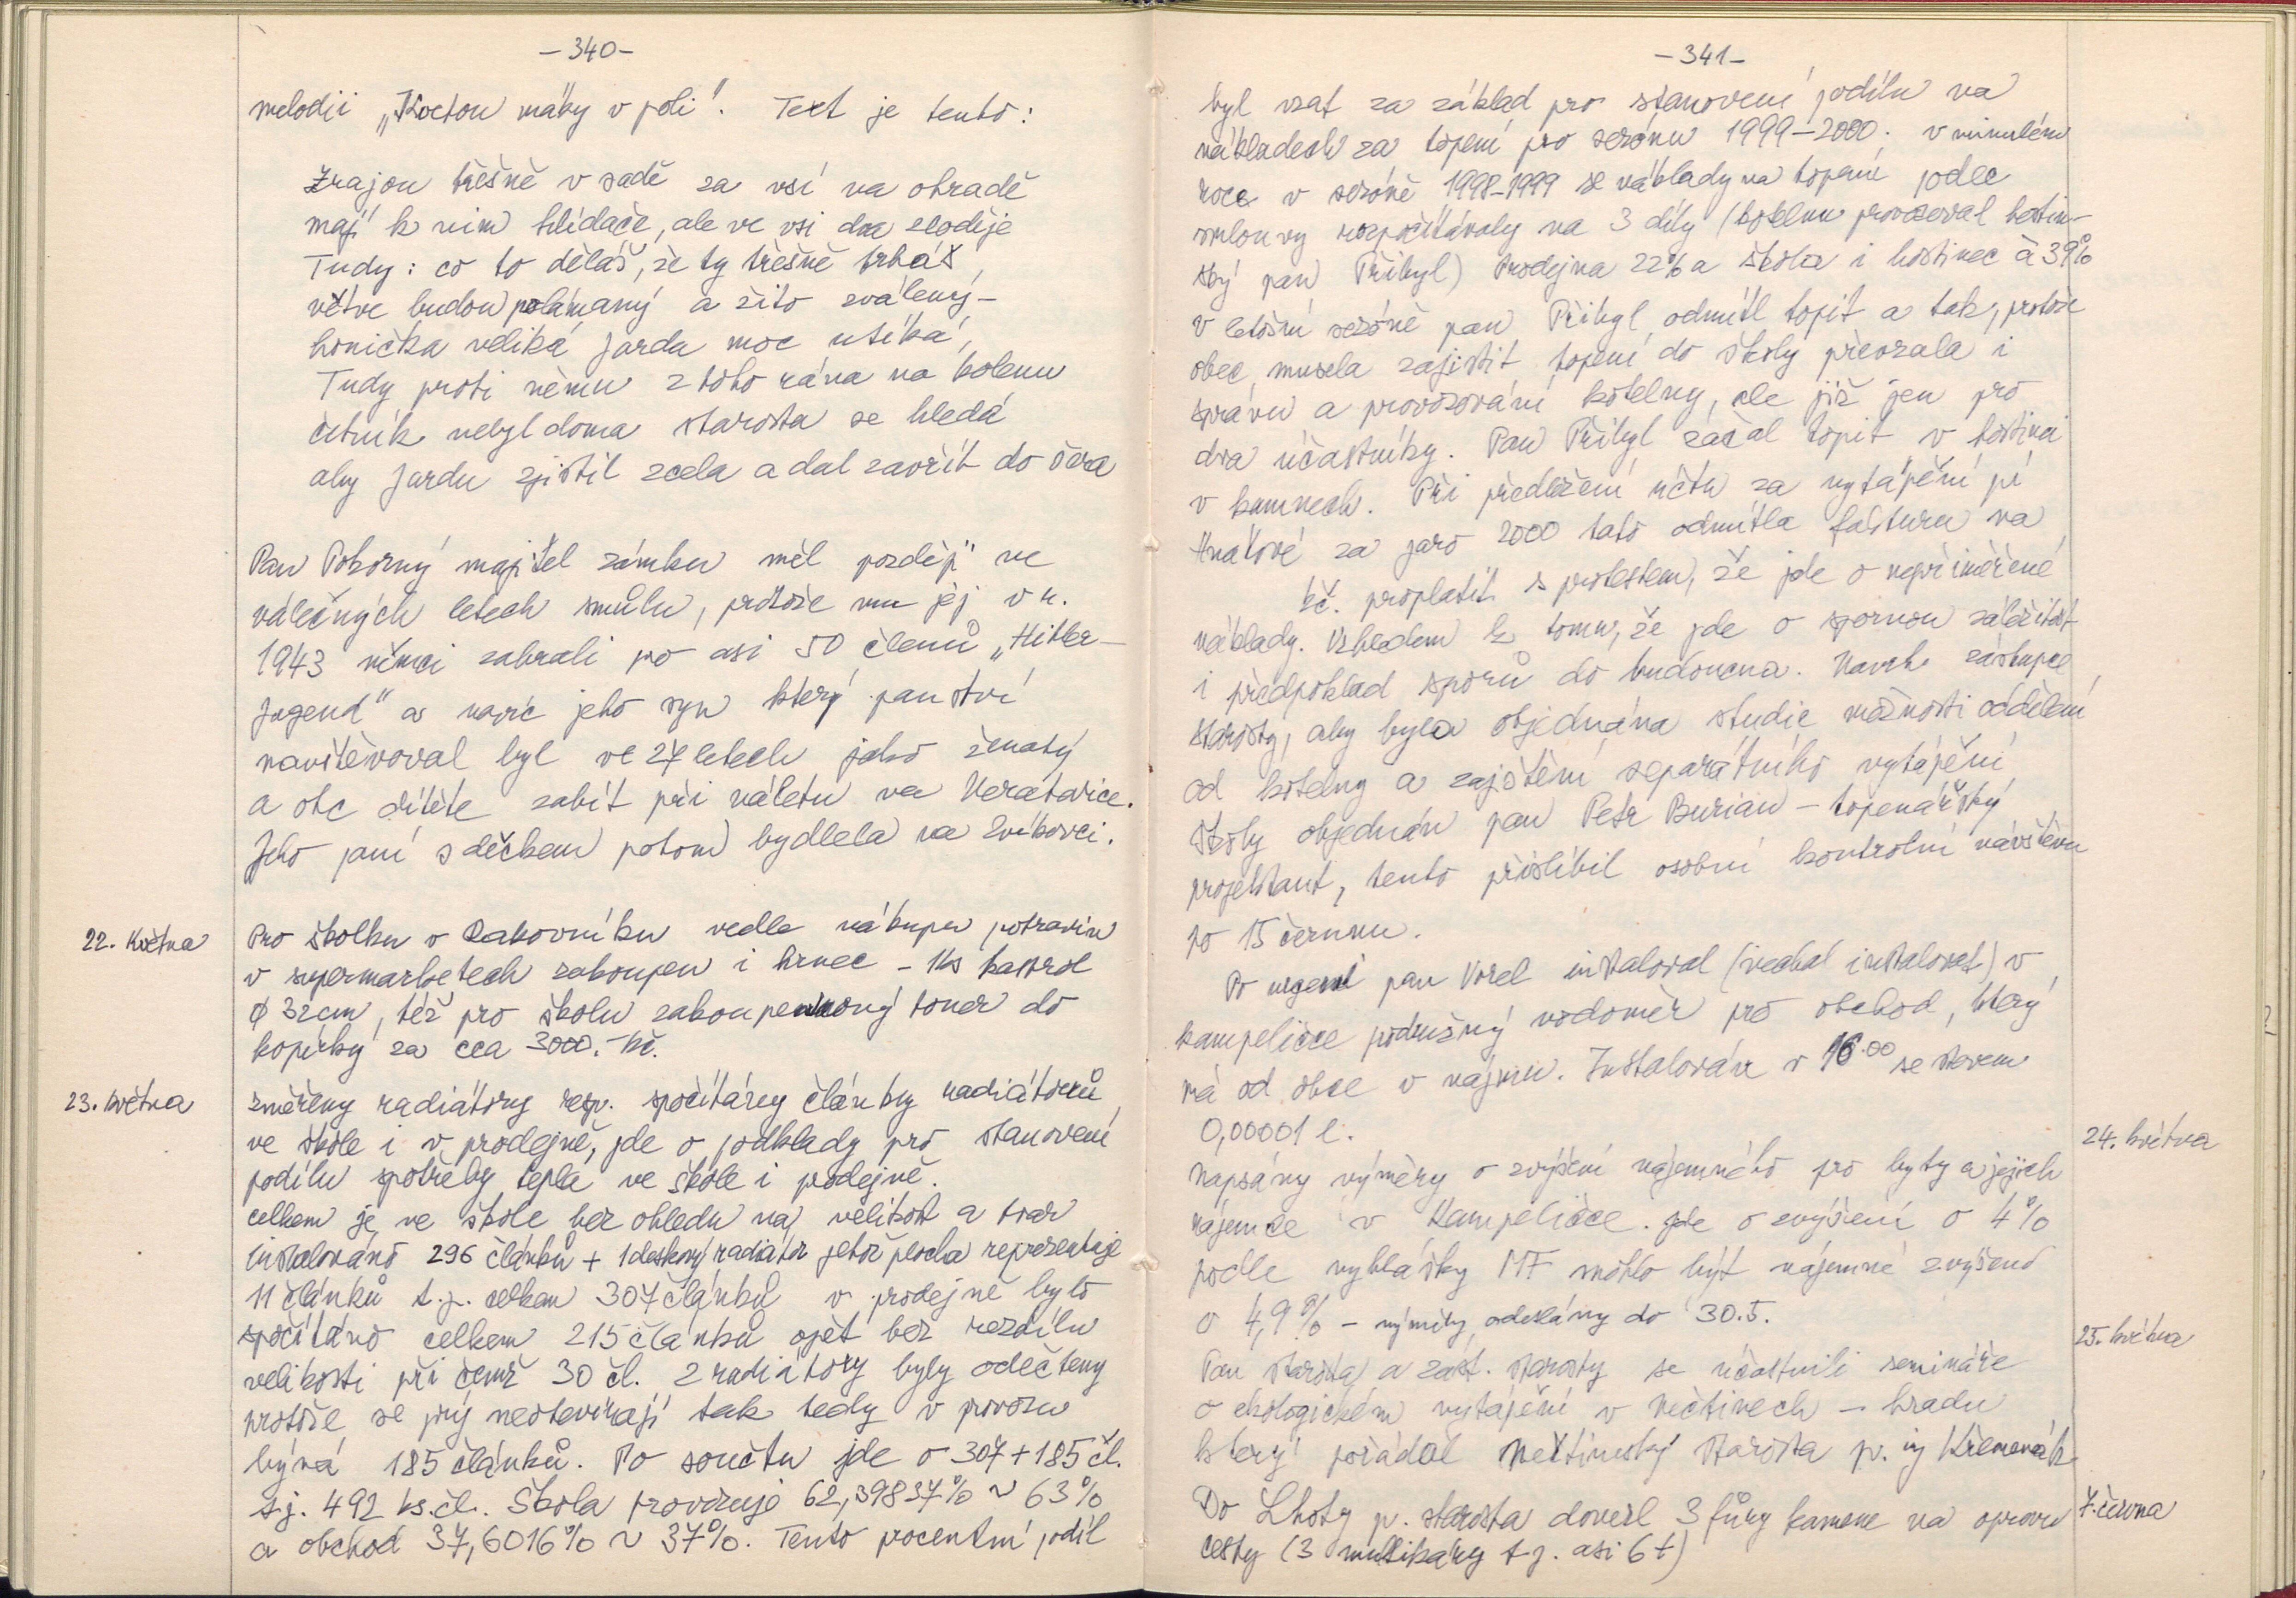 -340-
melodii „Kvetou máky v poli". Text je tento:
Zrajou třešně v sadě za vsí na ohradě
mají k nim hlídače, ale ve vsi dva zloděje
Tudy: co to děláš, že ty třešně trháš,
větve budou polámaný a žito zválený-
honička veliká Jarda moc utíká,
Tudy proti němu z toho rána na kolenu
četník nebyl doma starosta se hledá
aby Jardu zjistil zcela a dal zavřít do šera
Pan Pokorný majitel zámku měl později ve
válečných letech smůlu, protože mu jej v r.
1943 němci zabrali pro asi 50 členů „Hitler-
Jugend" a navíc jeho syn který panství
navštěvoval byl ve 27 letech jako ženatý
a otec dítěte zabit při náletu na Neratovice.
Jeho paní s děckem potom bydlela na Zvíkovci.
22. května
Pro školku v Rakovníku vedle nákupu potravin
v supermarketech zakoupen i hrnec - 1ks kastrol
ϕ 32cm, též pro školu zakoupen nový toner do
kopírky za cca 3000.-Kč.
23. května
změřeny radiátory resp. spočítány články radiátorů
ve škole i v prodejně, jde o podklady pro stanovení
podílu spotřeby tepla ve škole i prodejně.
celkem je ve škole bez ohledu na velikost a tvar
instalováno 296 článků + 1 deskový radiátor jehož plocha reprezentuje
11 článků t.j. celkem 307 článků v prodejně bylo
spočítáno celkem 215 článků opět bez rozdílu
velikosti při čemž 30 čl. 2 radiátory byly odečteny
protože se prý neotevírají tak tedy v provozu
bývá 185 článků. Po součtu jde o 307+185 čl.
t.j. 492 ks.čl. Škola provozuje 62,39837% ~ 63%
a obchod 37,6016% ~ 37%. Tento procentní podíl
-341-
byl vzat za základ pro stanovení podílu na
nákladech za topení pro sezónu 1999-2000. v minulém
roce v sezóně 1998-1999 se náklady na topení podle
smlouvy rozpočítávaly na 3 díly (kotelnu provozoval hostin-
ský pan Přibyl) Prodejna 22% a škola i hostinec à 39%
v letošní sezóně pan Přibyl odmítl topit a tak, protože
obec musela zajistit topení do školy převzala i
správu a provozování kotelny, ale již jen pro
dva účastníky. Pan Přibyl začal topit v hostinci
v kamnech. Při předložení účtu za vytápění pí
Hnátové za jaro 2000 tato odmítla fakturu na
Kč. proplatit s protestem, že jde o nepřiměřené
náklady. Vzhledem k tomu, že jde o spornou záležitost
i předpoklad sporů do budoucna. Navrh zástupce
starosty, aby byla objednána studie možnosti oddělení
od kotelny a zajištění separátního vytápění
školy objednán pan Petr Burian - topenářský
projektant, tento přislíbil osobní kontrolní návštěvu
po 15 červnu.
Po urgenci pan Vorel instaloval (nechal instalovat) v
kampeličce podružný vodoměr pro obchod, který
má od obce v nájmu. Instalován v 16.00 se stavem
0,00001 l.
24. května
Napsány výměry o zvýšení nájemného pro byty a jejich
nájemce v Kampeličce. jde o zvýšení o 4%
podle vyhlášky MF mohlo být nájemné zvýšeno
o 4,9% - výměry odeslány do 30.5.
25. května
Pan starosta a zást. starosty se účastnili semináře
o ekologickém vytápění v Nečtinech - hradu
který pořádal Nečtinský starosta p. ing Křemenák
7. června
Do Lhoty p. starosta dovezl 3 fůry kamene na opravu
cesty (3 multikáry t.j. asi 6t)